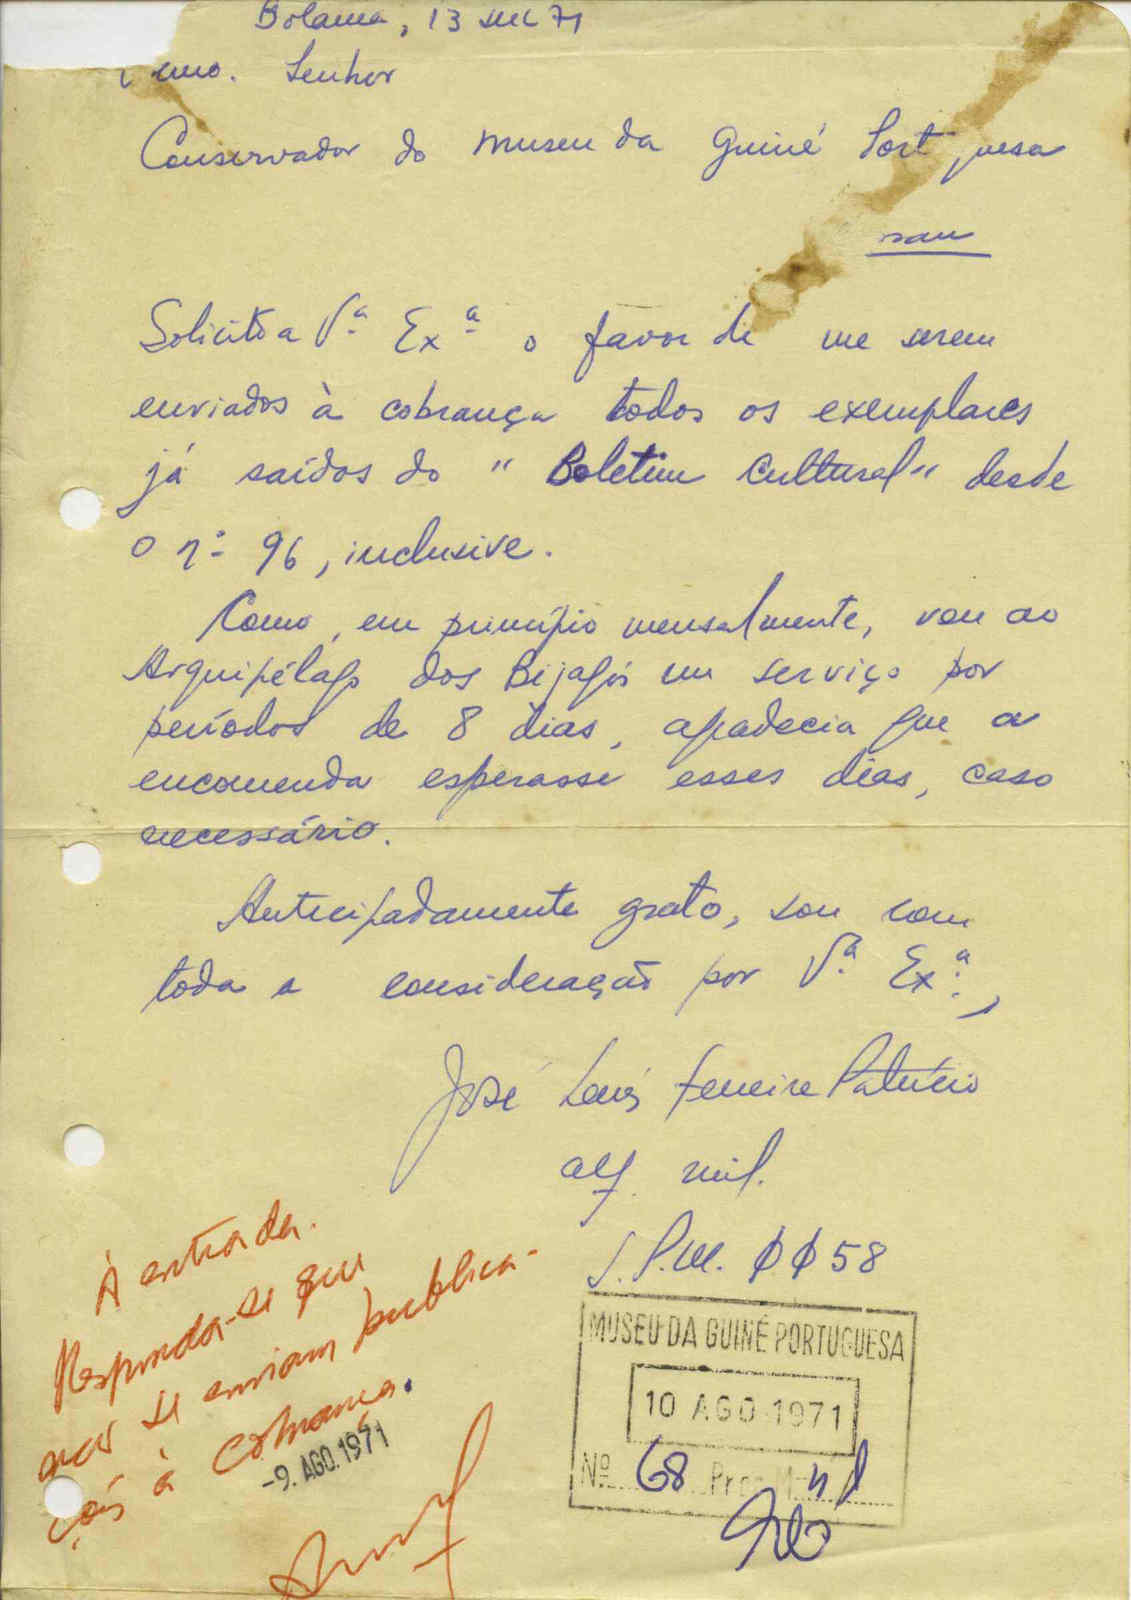 Bolama, 13 JUL 71
Exmo. Senhor
Conservador do Museu da Guiné Port guesa
Solicito a V.ª Ex.ª o favor de me serem
enviados à cobrança todos os exemplares
já saídos do "Boletim Cultural" desde
o n.º 96, inclusive.
Como, em princípio mensalmente, vou ao
Arquipélago dos Bijagós em serviço por
períodos de 8 dias, agradecia que a
encomenda esperasse esses dias, caso
necessário.
Antecipadamente grato, sou com
toda a consideração por V.ª Ex.ª,
José Luís Ferreira Patrício
alf. mil.
S.P.M. 0058
À entrada.
Responda-se que
não se enviam publica-
ções à cobrança.
-9. AGO. 1971
MUSEU DA GUINÉ PORTUGUESA
10 AGO 1971
Nº 68 Proc